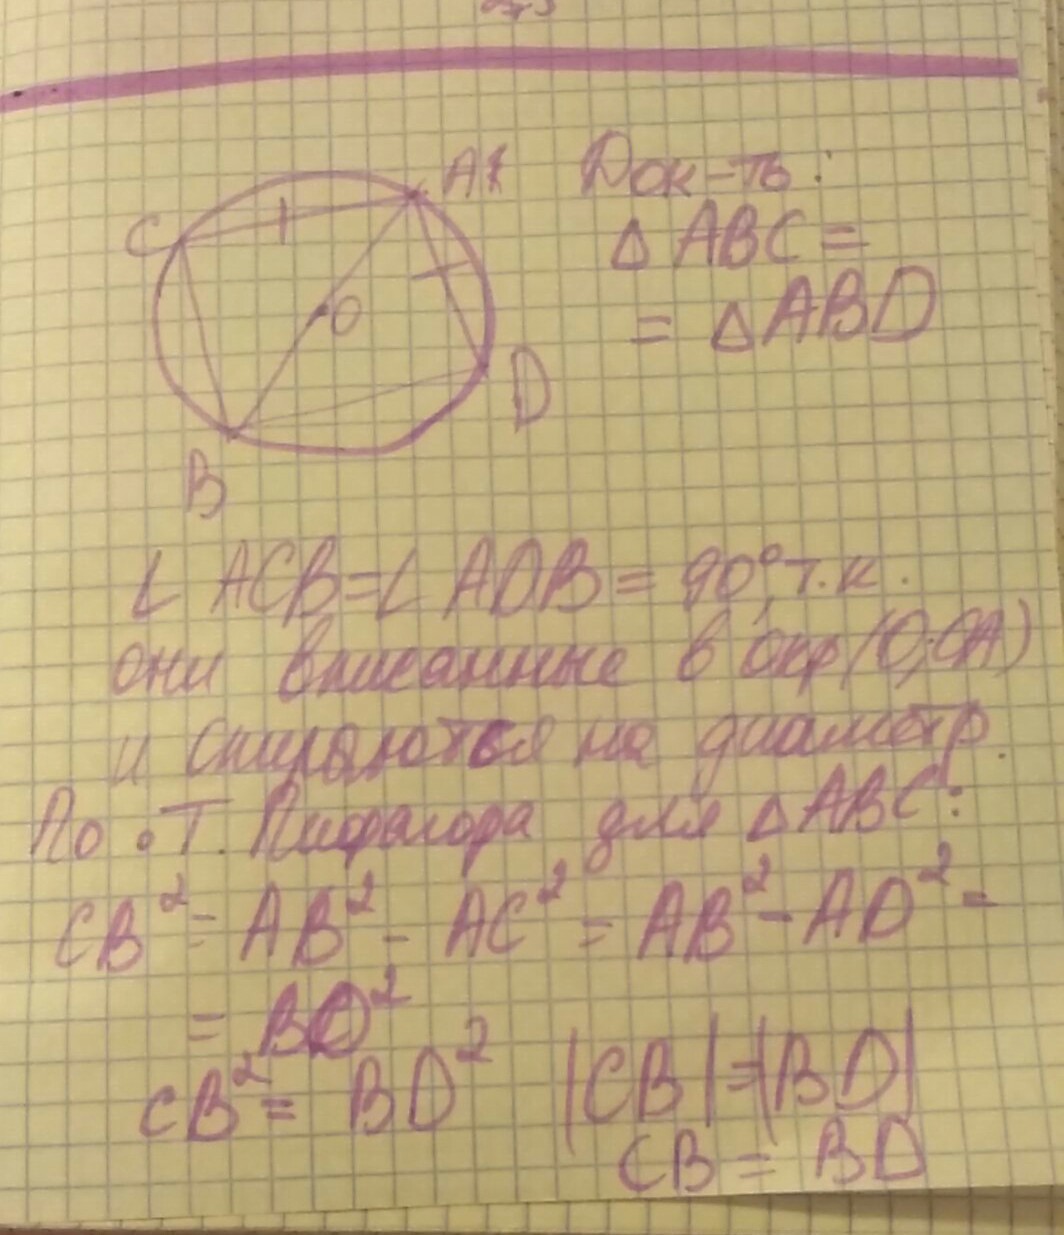 C
A
O
D
B
Док-ть:
△ ABC =
= △ ABD
∠ ACB = ∠ ADB = 90°, т.к.
они вписанные в окр(O;OA)
и опираются на диаметр.
По Т. Пифагора для △ ABC:
CB² = AB² - AC² = AB² - AD² =
= BD²
CB² = BD² |CB| = |BD|
CB = BD